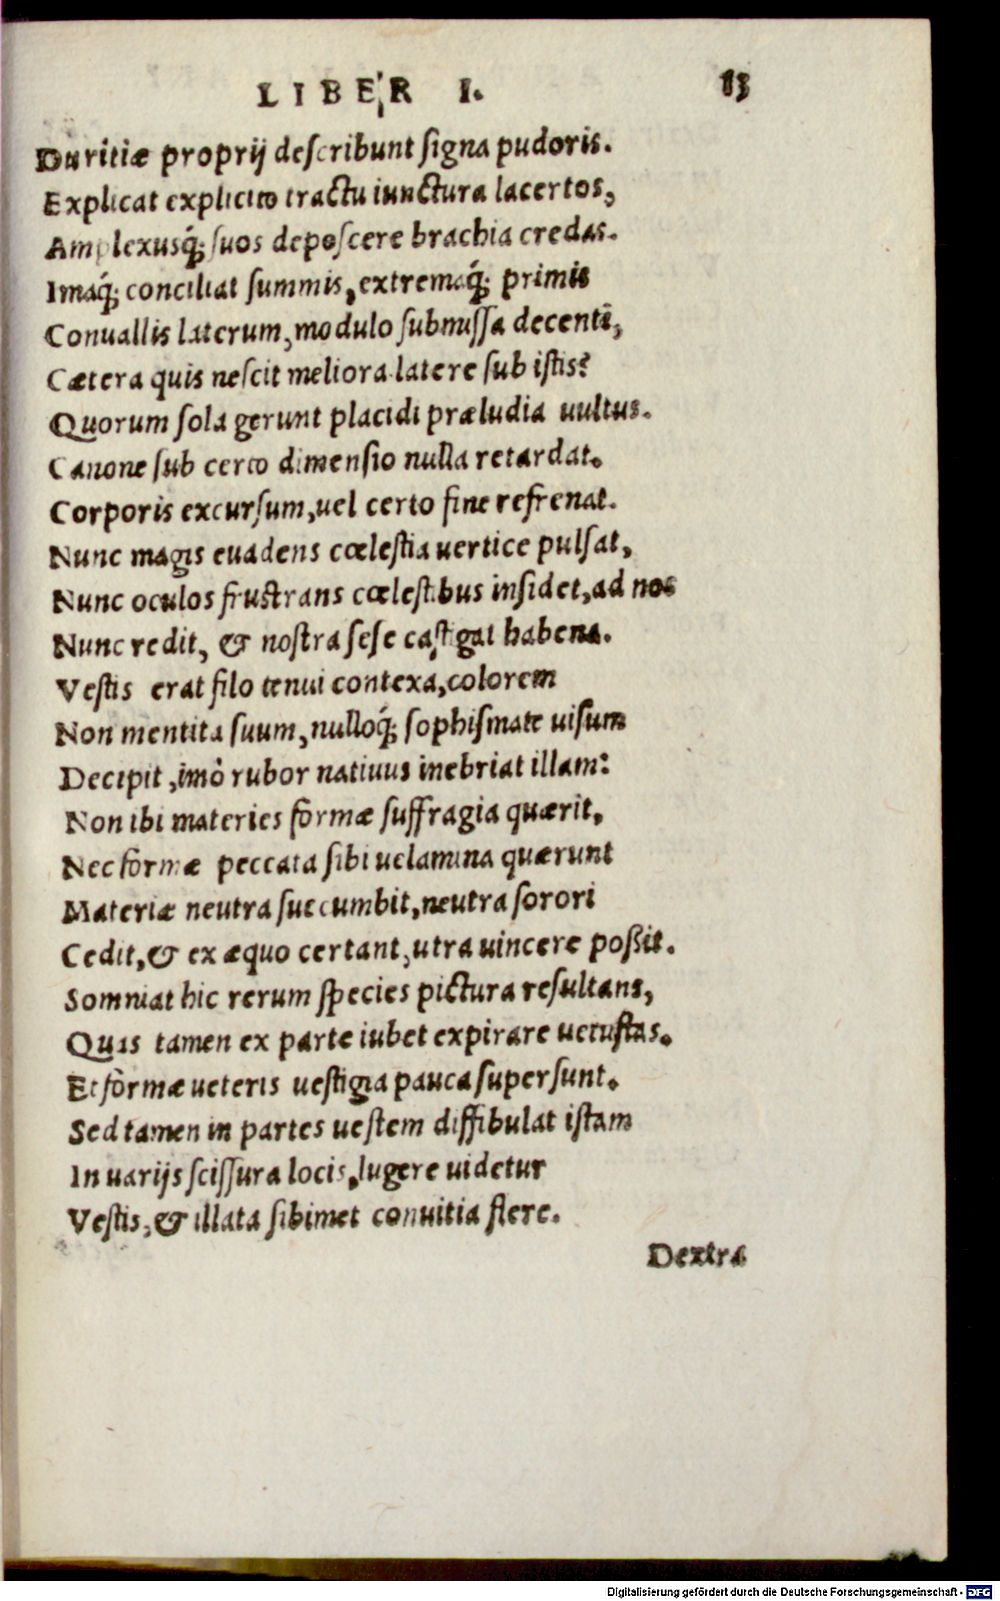 LIBER I. 13
Duritiæ proprij deſcribunt ſigna pudoris.
Explicat explicito tractu iunctura lacertos,
Amplexusq́; ſuos depoſcere brachia credas.
Imaq́; conciliat ſummis, extremaq́; primis
Conuallis laterum, modulo ſubmiſſa decenti,
Cætera quis neſcit meliora latere ſub iſtis?
Quorum ſola gerunt placidi præludia uultus.
Canone ſub certo dimenſio nulla retardat.
Corporis excurſum, uel certo fine refrenat.
Nunc magis euadens cœleſtia uertice pulſat,
Nunc oculos fruſtrans cœleſtibus inſidet, ad nos
Nunc redit, & noſtra ſeſe caſtigat habena.
Veſtis erat filo tenui contexa, colorem
Non mentita ſuum, nulloq́; ſophiſmate uiſum
Decipit, imò rubor natiuus inebriat illam:
Non ibi materies formæ ſuffragia quærit,
Nec formæ peccata ſibi uelamina quærunt
Materiæ neutra ſuccumbit, neutra ſorori
Cedit, & ex æquo certant, utra uincere poßit.
Somniat hic rerum ſpecies pictura reſultans,
Quas tamen ex parte iubet expirare uetuſtas.
Et formæ ueteris ueſtigia pauca ſuperſunt.
Sed tamen in partes ueſtem diffibulat iſtam
In uarijs ſciſſura locis, lugere uidetur
Veſtis, & illata ſibimet conuitia flere.
Dextra
Digitalisierung gefördert durch die Deutsche Forschungsgemeinschaft - DFG